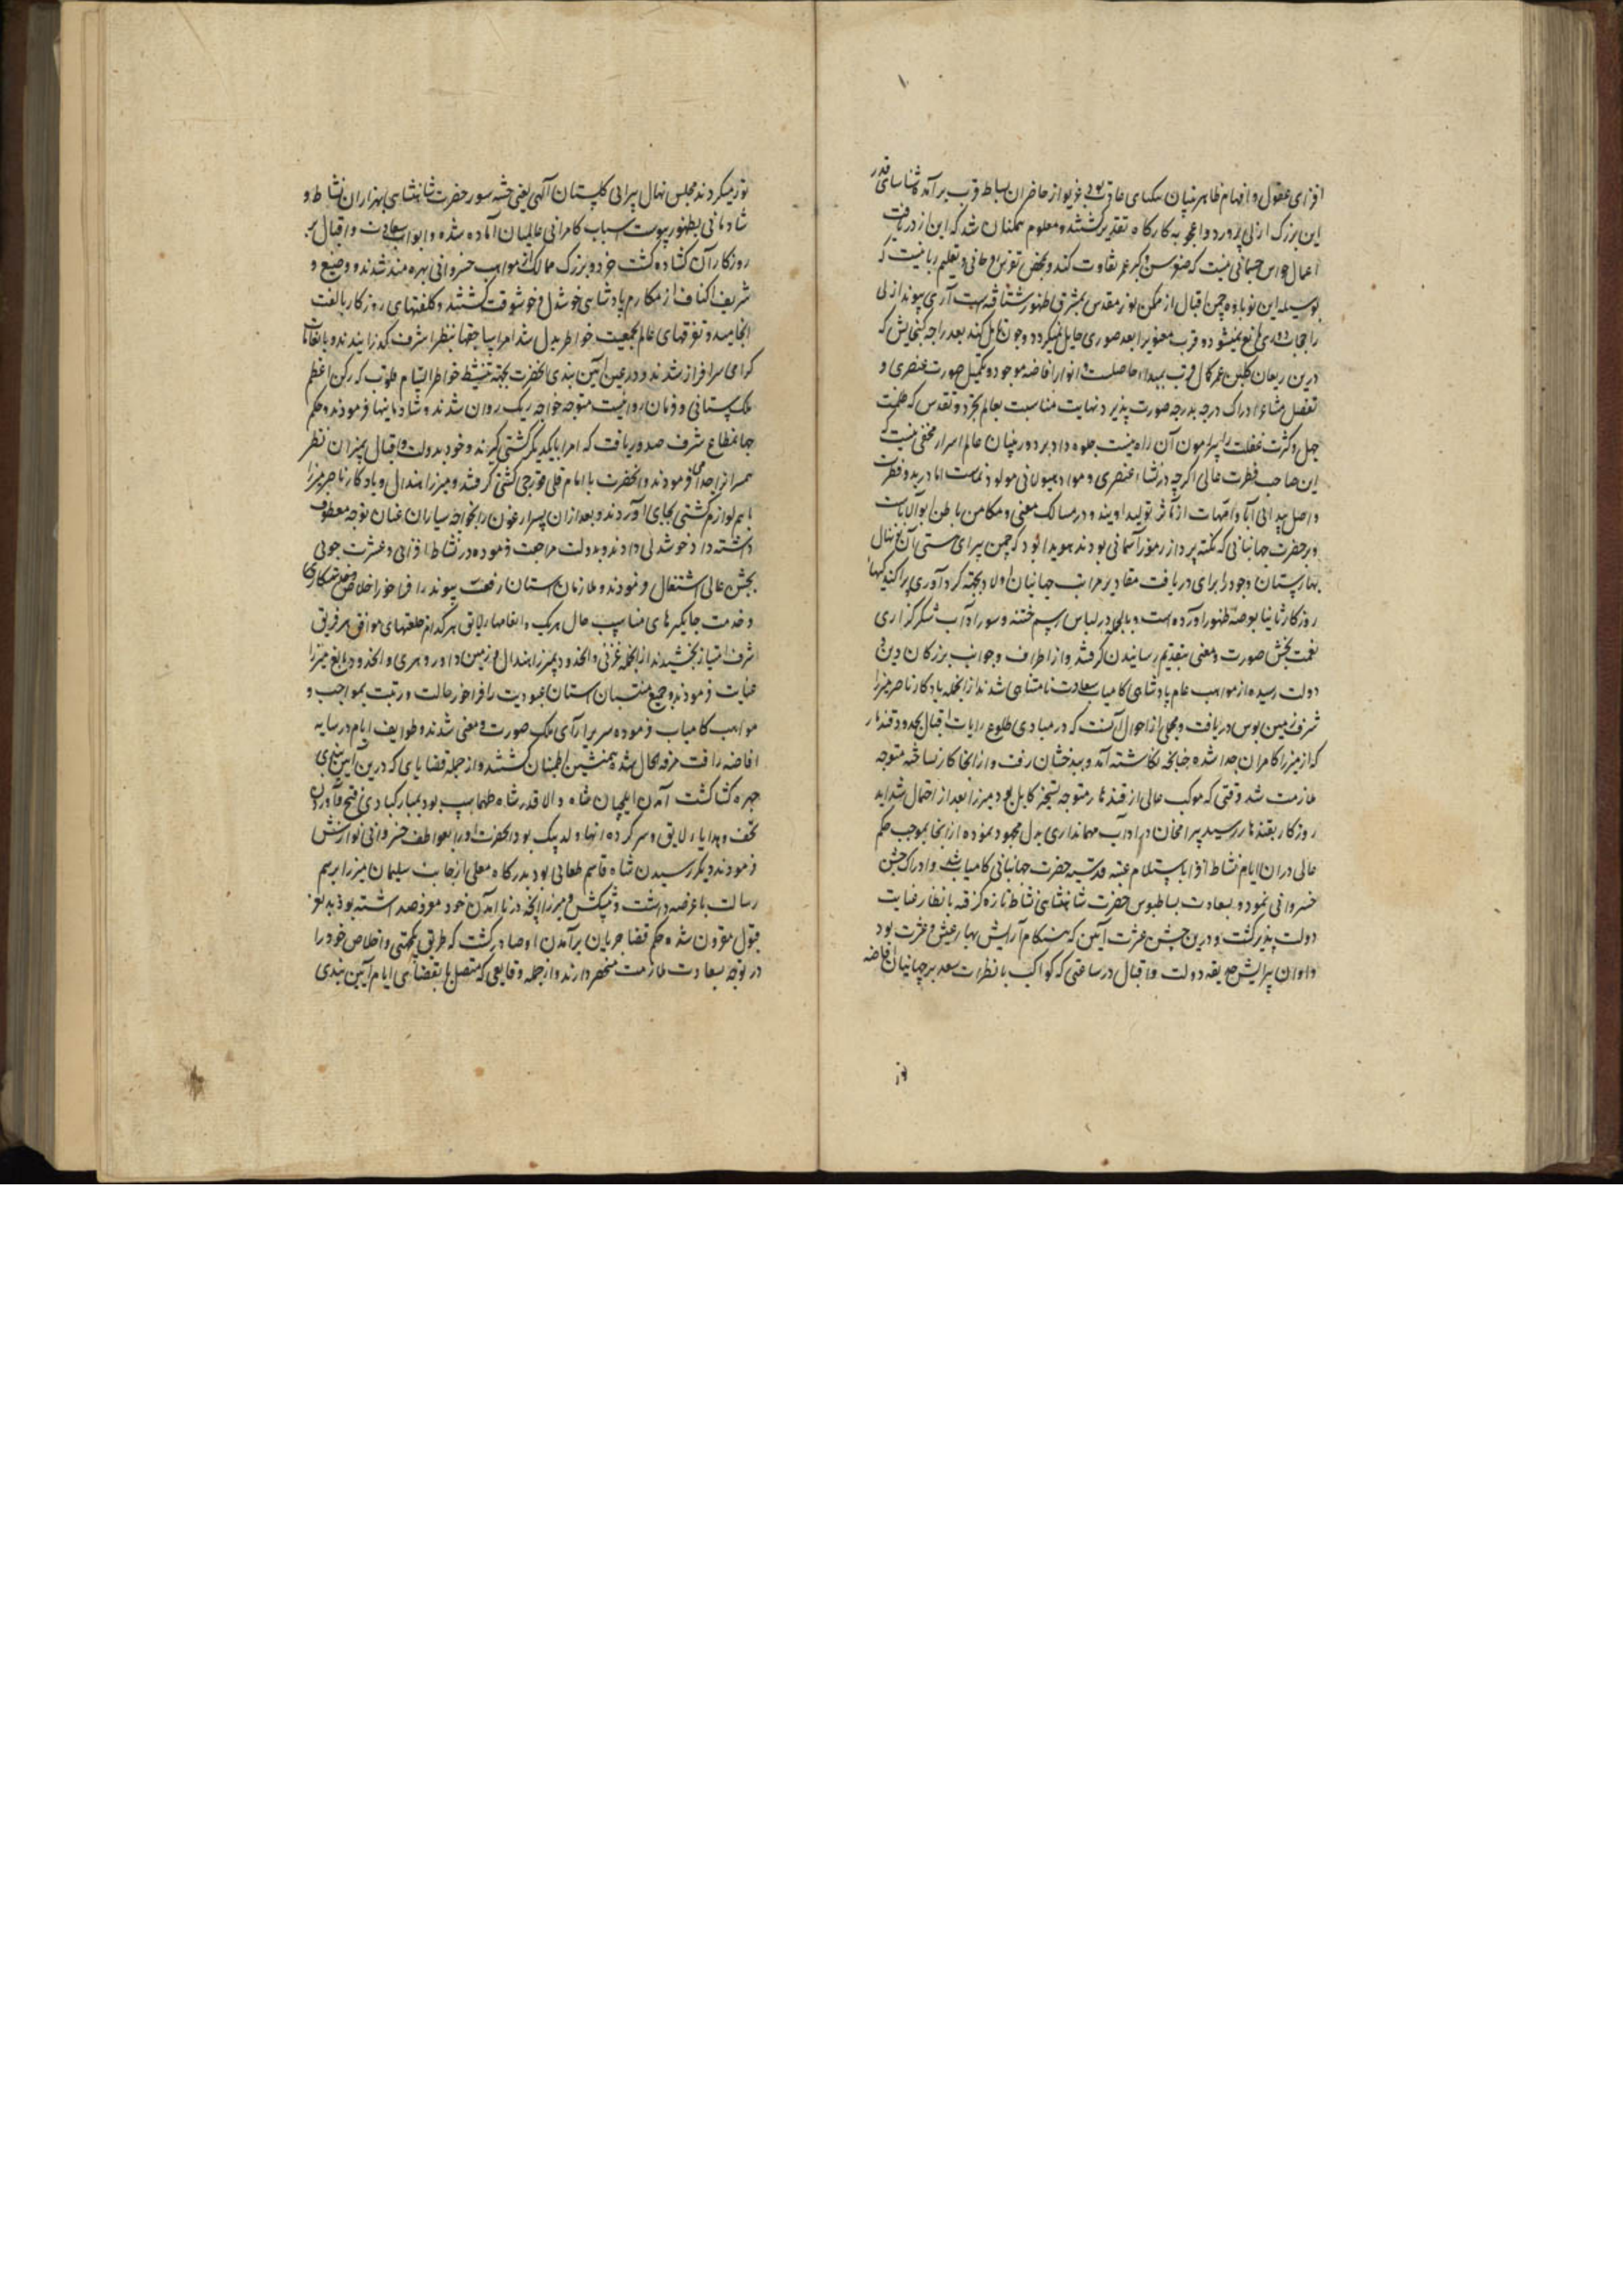 افزای عقول و افهام ظاهر بینان یکتای عاقبت بودی غریو از حاضران بساط قرب برآمد شناسای قدر
این بزرگ ازلی پرورد و اعجوبه کارگاه تقدیر گشتند و معلوم همکنان شد که این از دریافت
اعمال حواس جسمانی نیست که صغر سن و کبر عمر تفاوت کند و بمحض تفرس روحانی و تعلیم ربانیست که
بوسیله این نوباوه چمن اقبال از ممکن نور مقدس بمشرق ظهور شتافته است آری پیوند ازلی
را حجاب مانع نمیشود و قرب معنوی را بعد صوری حایل نمیگردد و چون حایل کند بعد را چه گنجایش که
درین ریعان گلبن عمر کمال قرب بمبداء حاصلست و انوار افاضه موجود و تکمیل صورت عنصری و
تفضل مشاعر ادراک درجه بدرجه صورت پذیر و نهایت مناسبت بعالم تجرد و تقدس که ظلمت
جهل و کثرت غفلت را پیرامون آن راه نیست جلوه دارد بر دوربینان عالم اسرار مخفی نیست که
این صاحب فطرت عالی اگرچه در نشاء عنصری و مواد هیولانی مولود نماست اما در بدو فطرت
و اصل پیدایی آبا و امهات از مآثر تولید اویند و در مسالک معنی و مکامن باطن ابوالاباست
و بر حضرت جهانبانی که نکته پرداز رموز آسمانی بودند هویدا بود که چمن پیرای هستی آن نخل نهال
بهارستان وجود را برای دریافت مقادیر مراتب جهانیان اولا و بجهته گرد آوری پراکندگیهاء
روزگار ثانیا بعرصه ظهور آورده است و بالجمله در لباس رسم ختنه و سور آداب شکرگذاری
نعمت بخش صورت و معنی بتقدیم رسانیدن گرفتند و از اطراف و جوانب بزرگان دین و
دولت رسیده از مواهب عام پادشاهی کامیاب سعادت نامتناهی شدند از انجمله یادگار ناصر میرزا
شرف زمین بوس دریافت و مجملی از احوال آنست که در مبادی طلوع رایات اقبال بحدود قندهار
که از میرزا کامران جدا شده چنانچه نگاشته آمد و ببدخشان رفت و از انجا کار نساخته متوجه
ملازمت شد وقتی که موکب عالی از قندهار متوجه تسخیر کابل بود میرزا بعد از احتمال شداید
روزگار بقندهار رسید بیرامخان در آداب مهمانداری بذل مجهود نموده از انجا بموجب حکم
عالی در ان ایام نشاط افزا باستلام عتبه قدسیه حضرت جهانبانی کامیاب شد و ادراک جشن
خسروانی نمود و بسعادت بساطبوس حضرت شاهنشاهی نشاط تازه گرفته بانظار عنایت
دولت پذیر گشت و درین جشن عشرت آیین که هنگام آرایش بهار عیش و عشرت بود
و اوان پیرایش حدیقه دولت و اقبال در ساعتی که کواکب بانظرات سعد بر جهانیان افاضه
نور میکردند مجلس نهال پیرایی گلستان آلهی یعنی ختنه سور حضرت شاهنشاهی بهزاران نشاط و
شادمانی بظهور پیوست اسباب کامرانی عالمیان آماده شده و ابواب سعادت و اقبال بر
روزگار آن گشاده گشت خرد و بزرگ ممالک از مواهب خسروانی بهره مند شدند و وضیع و
شریف اکناف از مکارم پادشاهی خوشدل و خوشوقت گشتند و کلفتهای روزگار بالفت
انجامید و تفرقهای عالم بجمعیت خواطر بدل شد امرا پیاجقها بنظر اشرف گذرانیدند و بالتفات
گرامی سرافراز شدند و در عین آیین بندی آنحضرت بجهته تنشیط خواطر التیام قلوب که رکن اعظم
ملک ستانی و فرمان روائیست متوجه خواجه ریگ روان شدند و شادمانیها فرمودند و حکم
جهانمطاع شرف صدور یافت که امرا با یکدیگر کشتی گیرند و خود بدولت و اقبال بمیزان نظر
همسر از جدا می فرمودند و آنحضرت با امام قلی قورچی کشتی گرفتند و میرزا هندال و یادگار ناصر میرزا
باهم لوازم کشتی بجای آوردند و بعد از ان پسر ارغون را بخواجه سیاران عنان توجه معطوف
داشته داد خوشدلی دادند و بدولت مراجعت فرموده در نشاط افزایی و عشرت جویی
بجشن عالی اشتغال فرمودند و ملازمان آستان رفعت پیوند را فراخور اخلاص و خدمتکاری
و خدمت جایگیرهای مناسب حال هریک و انعامها لایق هرکدام خلعتهای موافق هر فریق
شرف امتیاز بخشیدند از انجمله غزنی و انحدود بمیرزا هندال و زمین داور و هری و انحدود به الغ میرزا
عنایت فرمودند و جمیع منتسبان آستان عبودیت را فراخور حالت و رتبت بمواجب و
مواهب کامیاب فرموده سریر آرای ملک صورت و معنی شدند و طوایف ایام در سایه
افاضه رافت مرفه الحال شده همنشین اطمینان گشتند و از جمله قضایای که درین آیین بندی
چهره گشا گشت آمدن ایلچیان شاه والا قدر شاه طهماسب بود بمبارکبادی فتح و آوردن
تحف و هدایاء لایق و سرکرده انها ولد بیک بود آنحضرت او را بعواطف خسروانی نوازش
فرمودند دیگر رسیدن شاه قاسم طغائی بود بدرگاه معلی از جانب سلیمان میرزا برسم
رسالت با عرضه داشت و پیشکش و میرزا آنچه در نا آمدن خود معروضه داشته بود بدرجه
قبول مقرون نشد و حکم قضا جریان بر آمدن او صادر گشت که طریق یکجهتی و اخلاص خود را
در توجه بسعادت ملازمت منحصر دارند و از جمله وقایعی که متصل بانقضای ایام آیین بندی